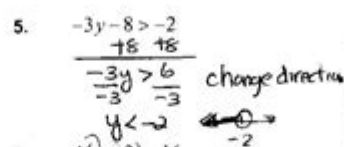 5. -3y-8>-2
+8 +8
-3y > 6 change direction
-3 -3
y<-2
-2